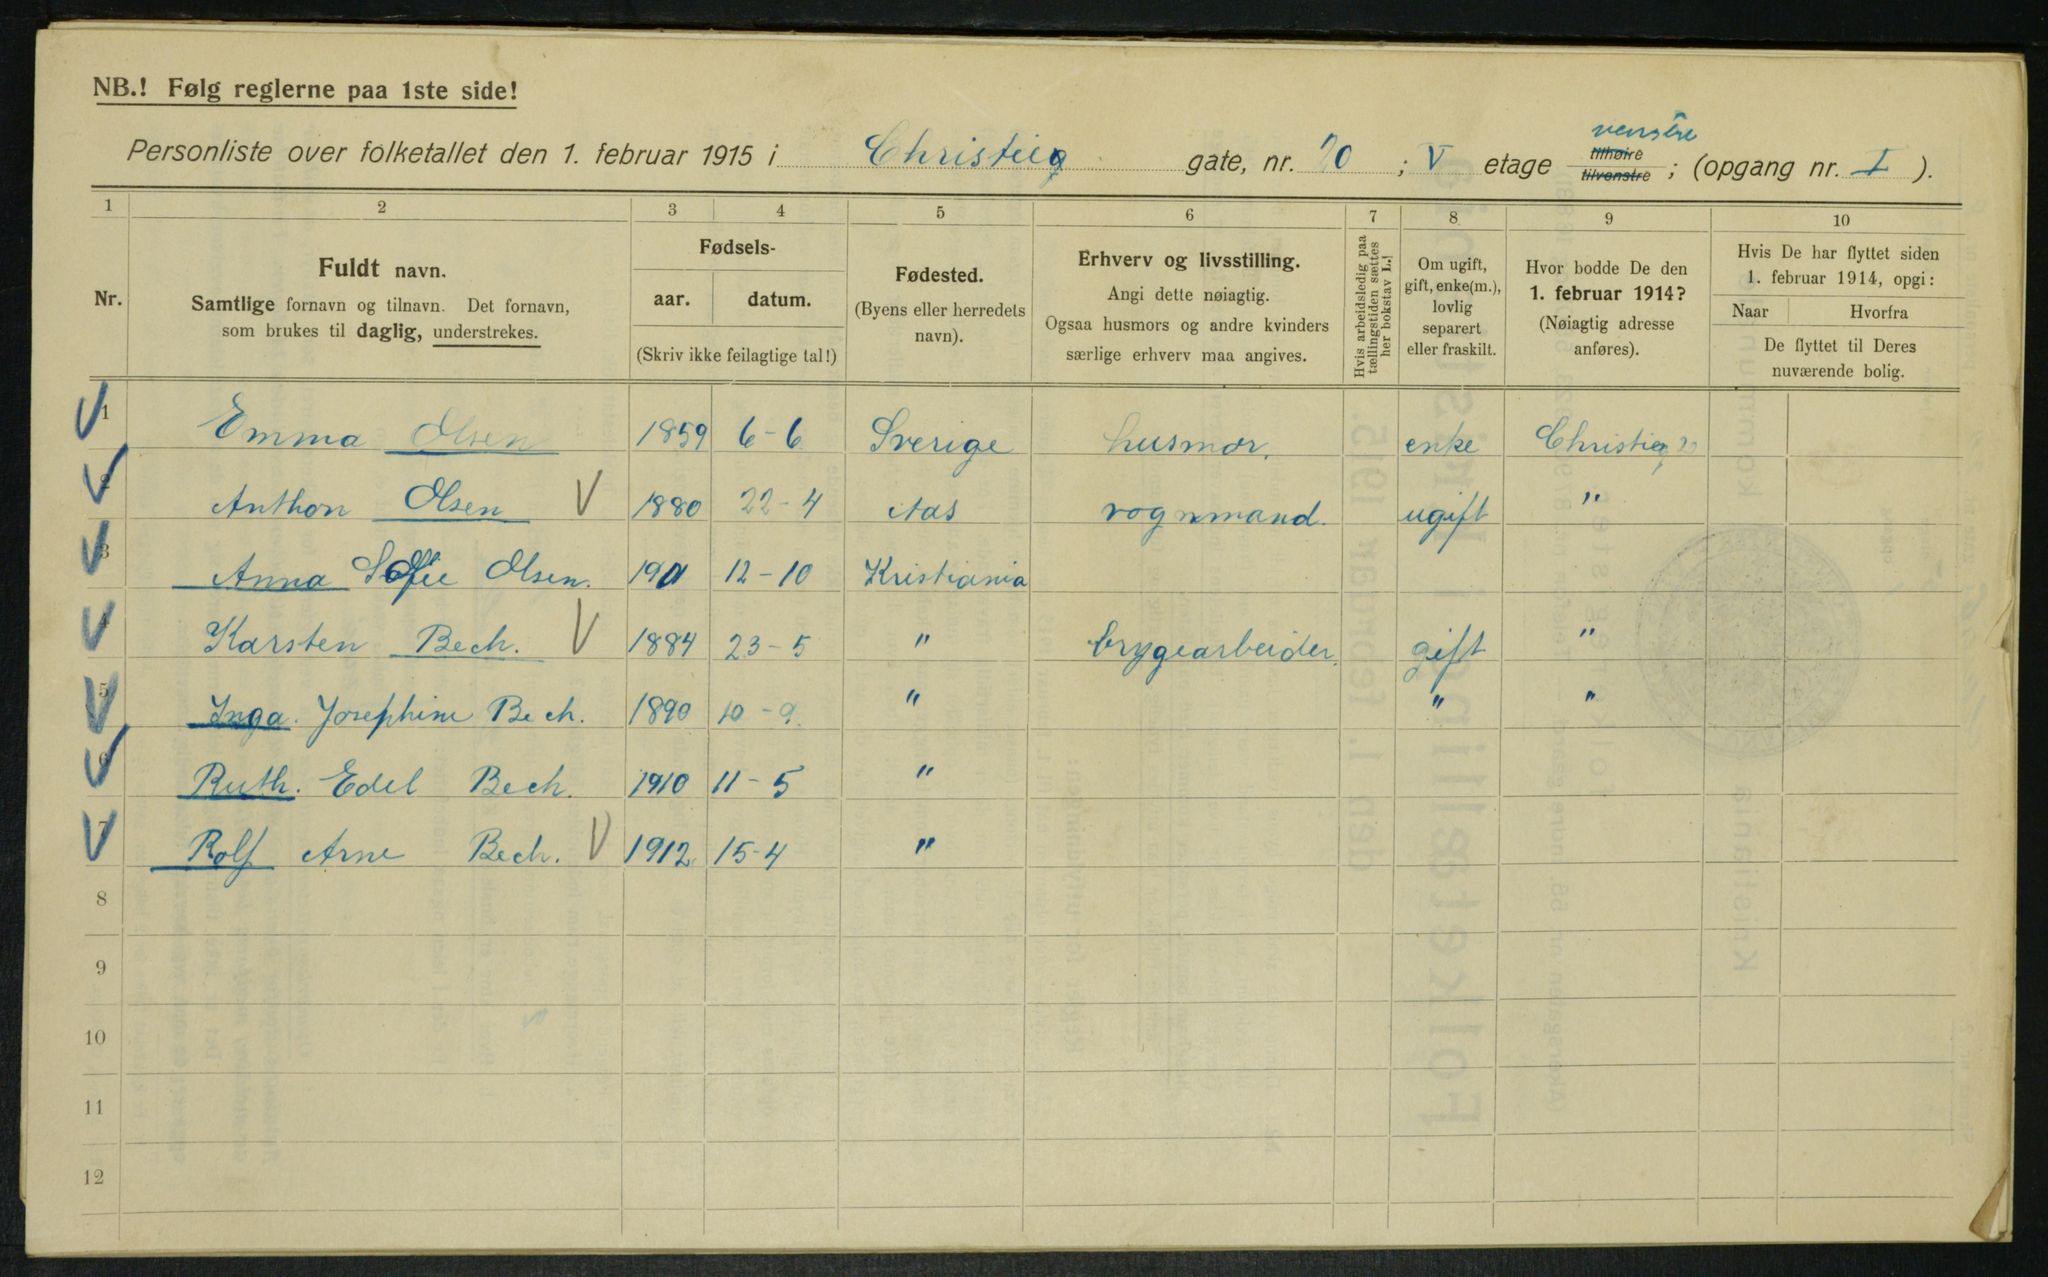 NB.! Følg reglerne paa 1ste side!
Personliste over folketallet den 1. februar 1915 i Christieg gate, nr. 20 ; V etage tilhøire tilvenstre venstre ; (opgang nr. I ).
1 2 3 4 5 6 7 8 9 10
Nr.
Fuldt navn.
Samtlige fornavn og tilnavn. Det fornavn,
som brukes til daglig, understrekes.
Fødsels-
aar. datum.
(Skriv ikke feilagtige tal!)
Fødested.
(Byens eller herredets
navn).
Erhverv og livsstilling.
Angi dette nøiagtig.
Ogsaa husmors og andre kvinders
særlige erhverv maa angives.
Hvis arbeidsledig paa
tællingstiden sættes
her bokstav L.!
Om ugift,
gift, enke(m.),
lovlig
separert
eller fraskilt.
Hvor bodde De den
1. februar 1914?
(Nøiagtig adresse
anføres).
Hvis De har flyttet siden
1. februar 1914, opgi:
Naar Hvorfra
De flyttet til Deres
nuværende bolig.
1 Emma Olsen 1859 6-6 Sverige husmor. enke Christieg 20
2 Anthon Olsen V 1880 22-4 Aas vognmand. ugift "
3 Anna Soffie Olsen. 1911 12-10 Kristiania
4 Karsten Bech. V 1884 23-5 " brygearbeider. gift "
5 Inga. Josephine Bech. 1890 10-9. " " "
6 Ruth. Edel Bech. 1910 11-5 "
7 Rolf Arne Bech. V 1912 15-4 "
8
9
10
11
12